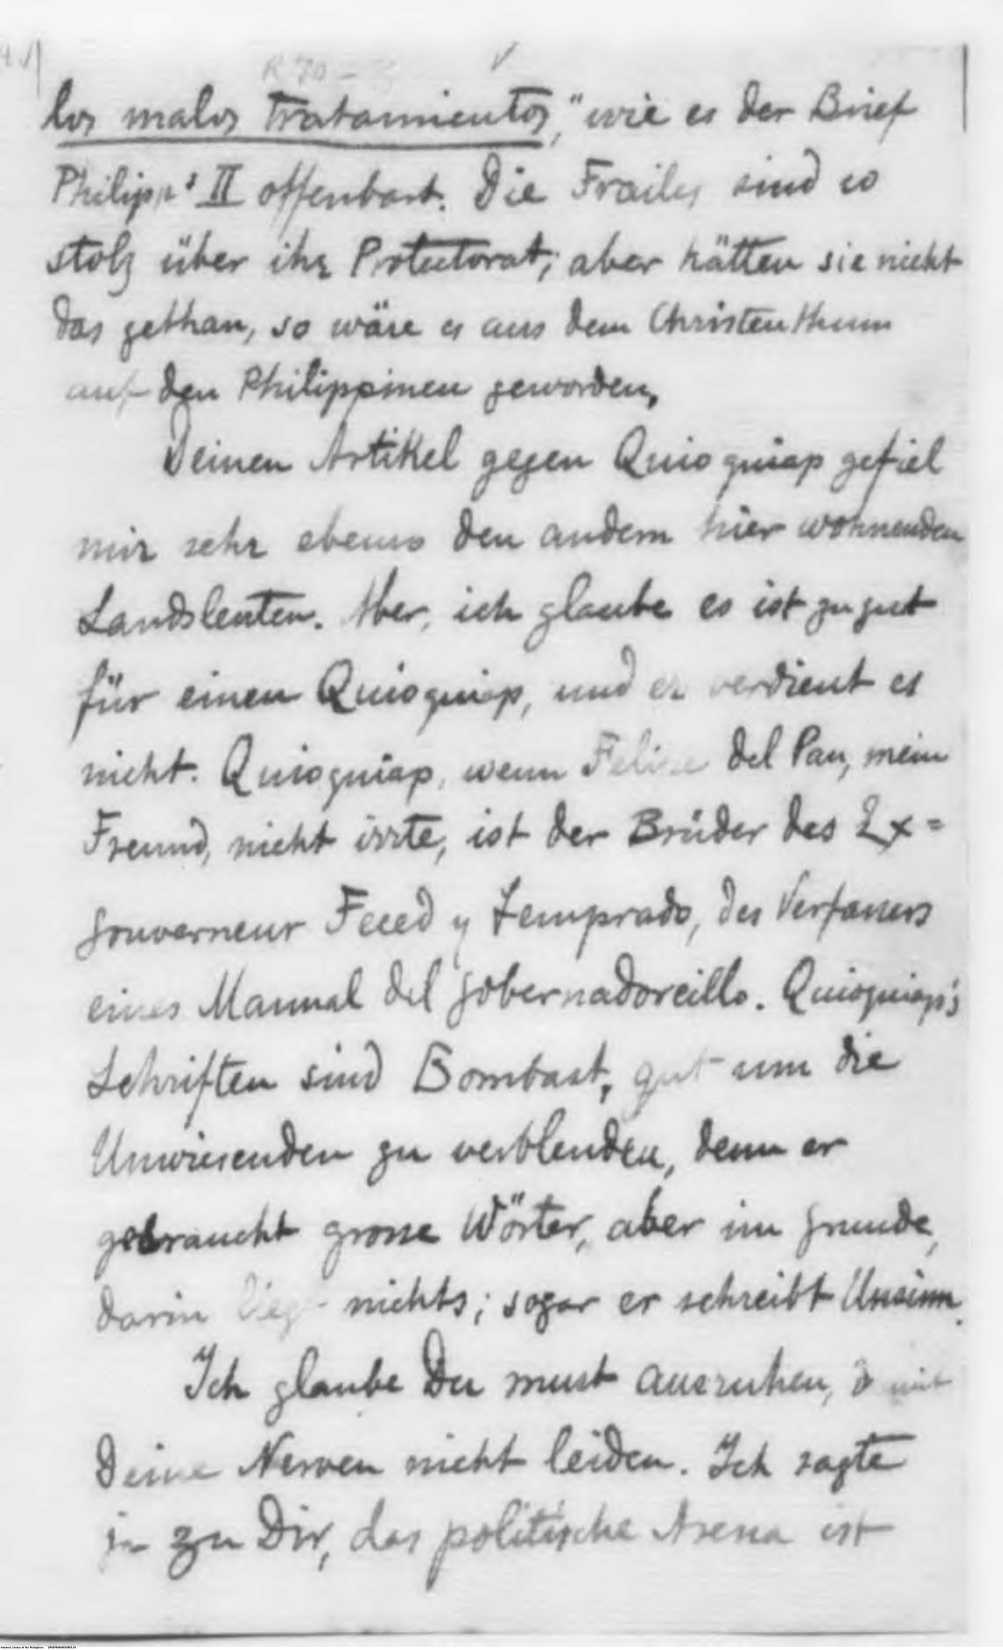 los malos tratamientos," wie es der Brief
Philipp's II offenbart. Die Frailes sind so
stolz über ihr Protectorat; aber hätten sie nicht
das gethan, so wäre es aus dem Christenthum
auf den Philippinen geworden,
Deinen Artikel gegen Quioquiap gefiel
mir sehr ebenso den andern hier wohnenden
Landsleuten. Aber, ich glaube es ist zu gut
für einen Quioquiap, und er verdient es
nicht. Quioquiap, wenn Felipe del Pan, mein
Freund, nicht irrte, ist der Brüder des Ex=
gouverneur Feced y Temprado, des Verfassers
eines Manual del gobernadorcillo. Quioquiap's
Schriften sind Bombast, gut um die
Unwissenden zu verblenden, denn er
gebraucht grosse Wörter, aber im grunde,
darin liegt nichts; sogar er schreibt Unsinn.
Ich glaube Du must ausruhen, damit
Deine Nerven nicht leiden. Ich sagte
ja zu Dir, das politische Arena ist